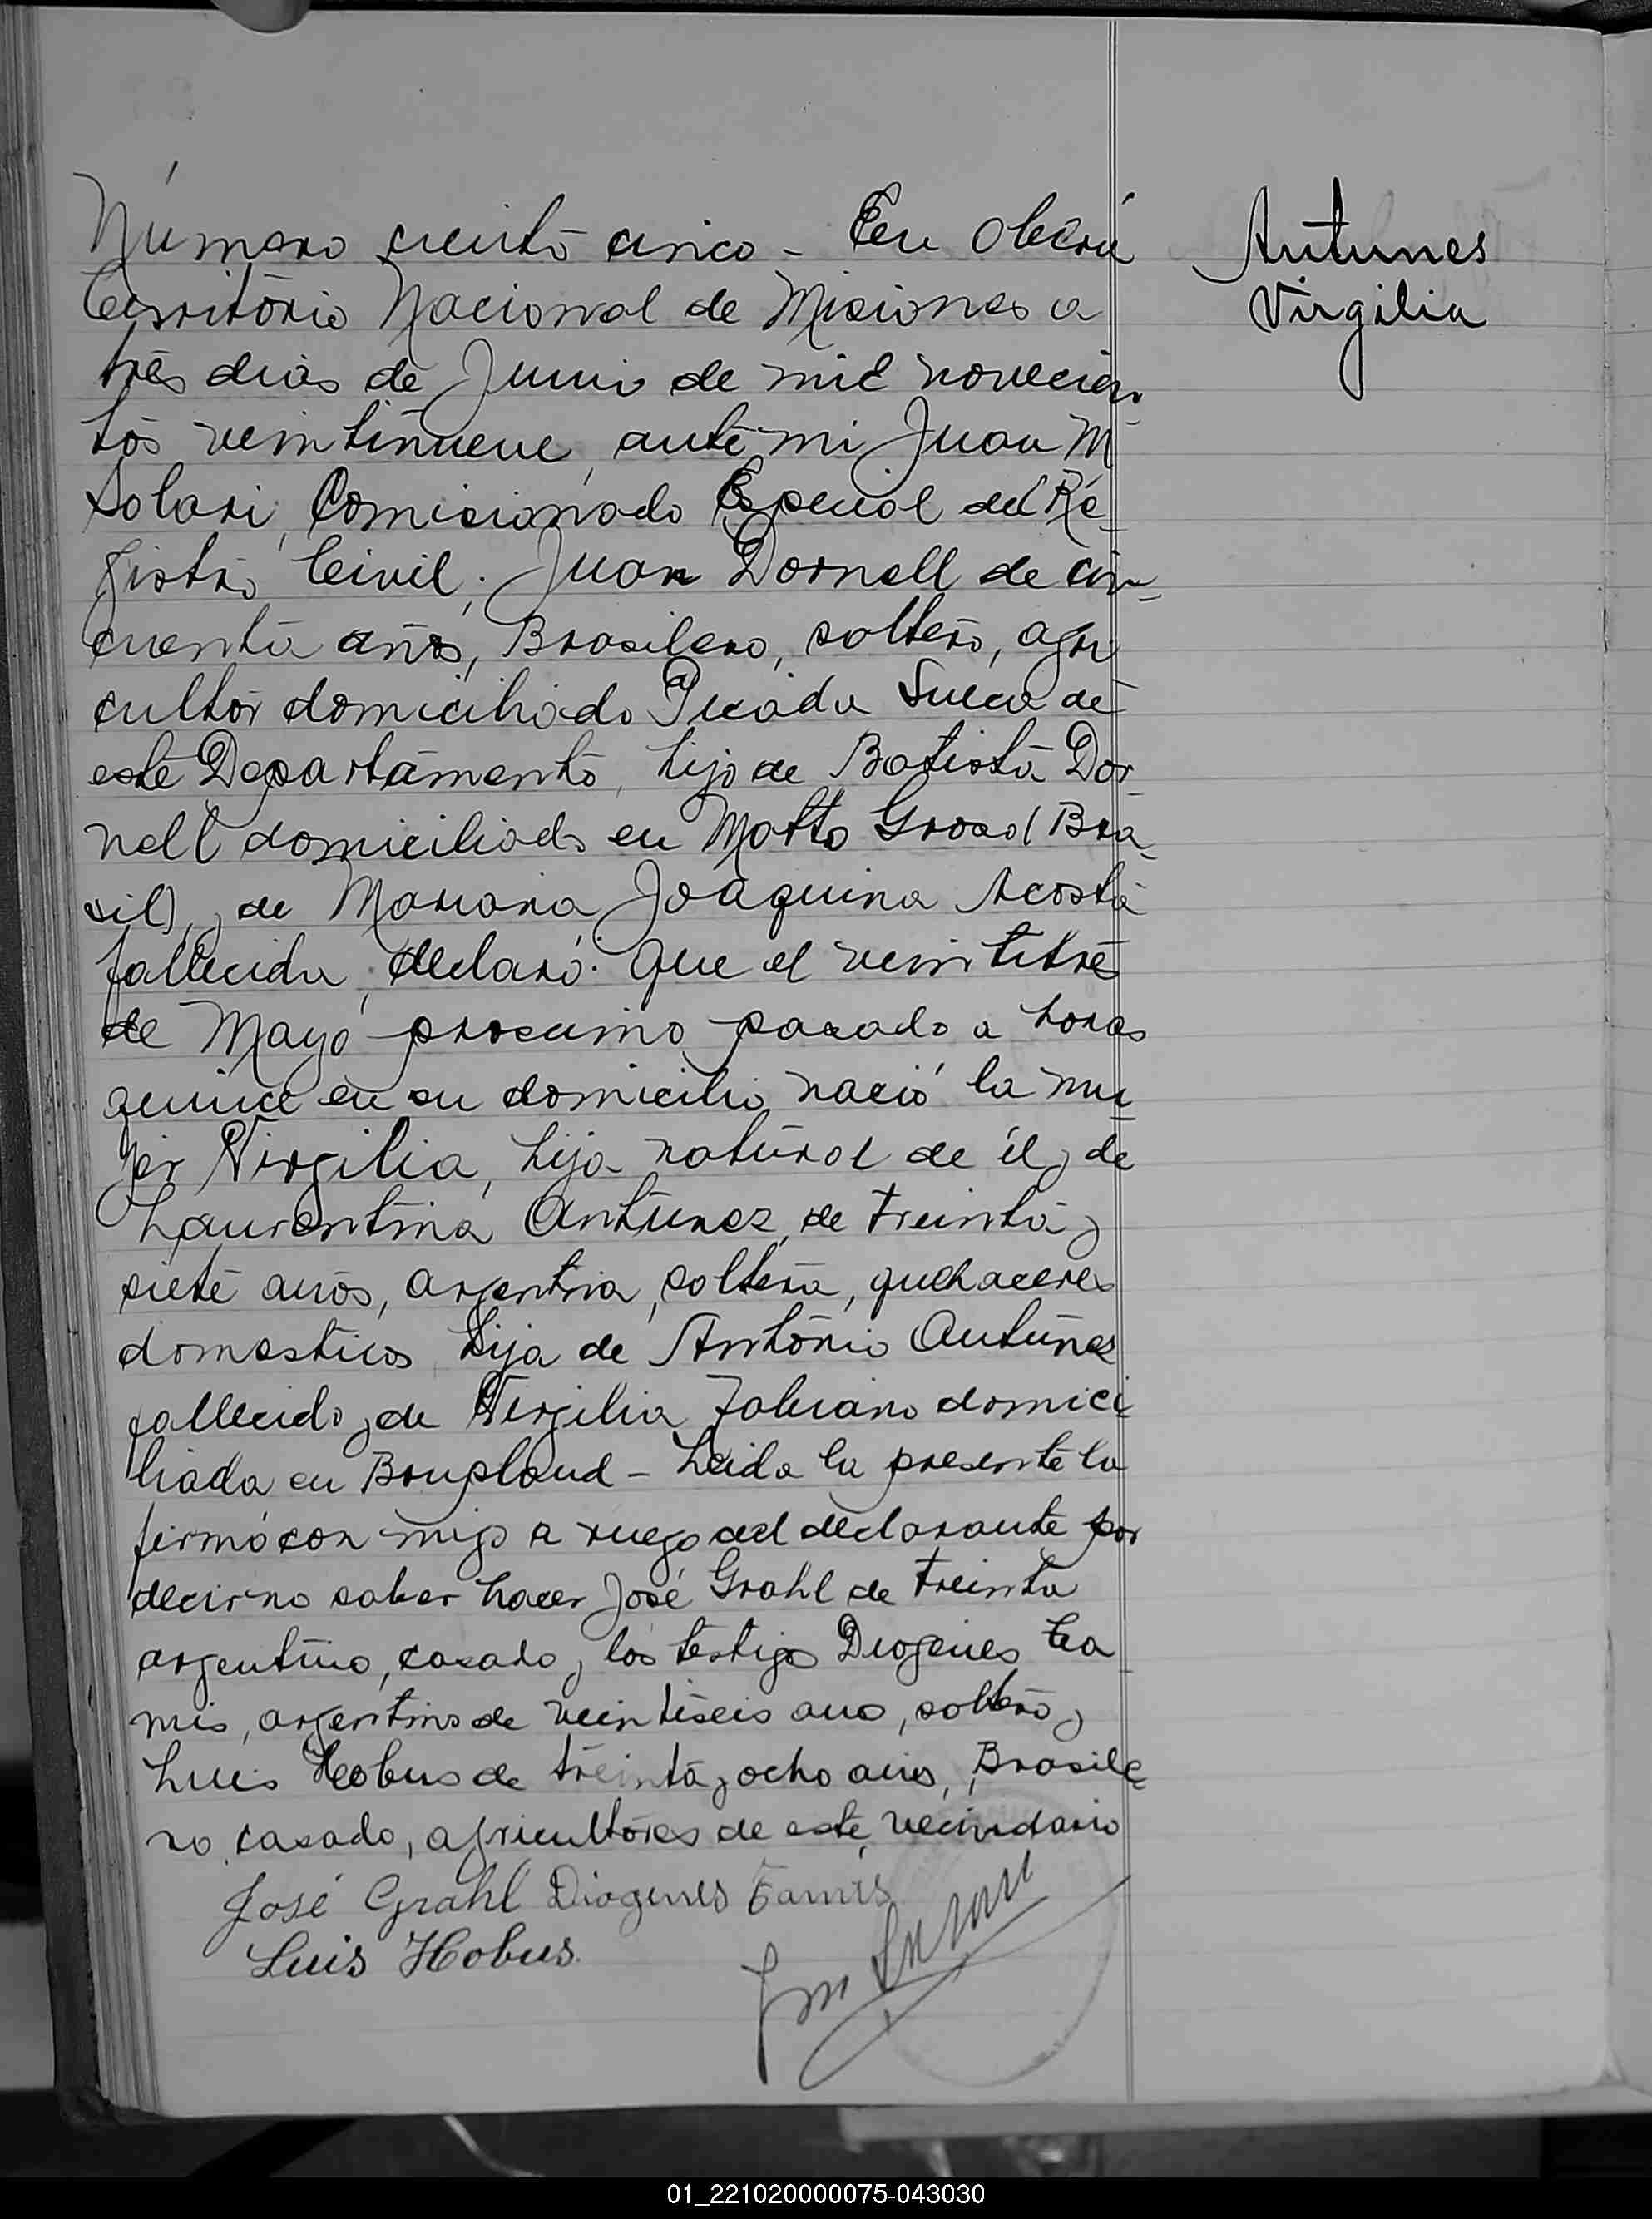 Número ciento cinco - En Oberá
Territorio Nacional de Misiones a
tres dias de Junio de mil novecien
tos veintinueve, ante mi Juan M
Solari, Comicionado Especial del Re-
gistro Civil; Juan Dornell de cin-
cuenta años, Brasilero, soltero, agri
cultor domiciliado Picada Sueca de
este Departamento, hijo de Batista Dor-
nell domiciliado en Matto Grosso (Bra-
sil), y de Mariana Joaquina Acosta
fallecida, declaró: Que el veintitres
de Mayo procsimo pasado a horas
quince en su domicilio nació la mu-
jer Virgilia, hija natural de él y de
Laurentina Antunez, de treinta y
siete años, argentina, soltera, quehaceres
domesticos hija de Antonio Antunez
fallecido y de Virgilia Fabiano domici
liada en Bonpland - Leida la presente la
firmó con migo a ruego del declarante por
decir no saber hacer José Grahl de treinta
argentino, casado y los testigos Diogenes Ta-
mis, argentino de veintiseis años, soltero y
Luis Hobus de treinta y ocho años, Brasile
ro casado, agricultores de este vecindario
José Grahl Diogenes Tamis
Luis Hobus.
Antunes
Virgilia
01_221020000075-043030